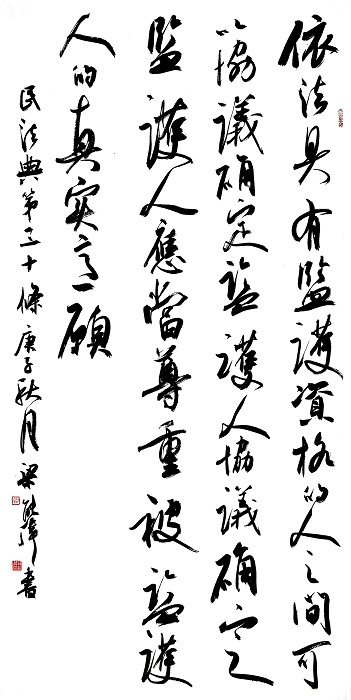 依法具有監護資格的人之間可
以協議確定監護人協議確定
監護人應當尊重被監護
人的真实意願
民法典第三十條庚子秋月梁書